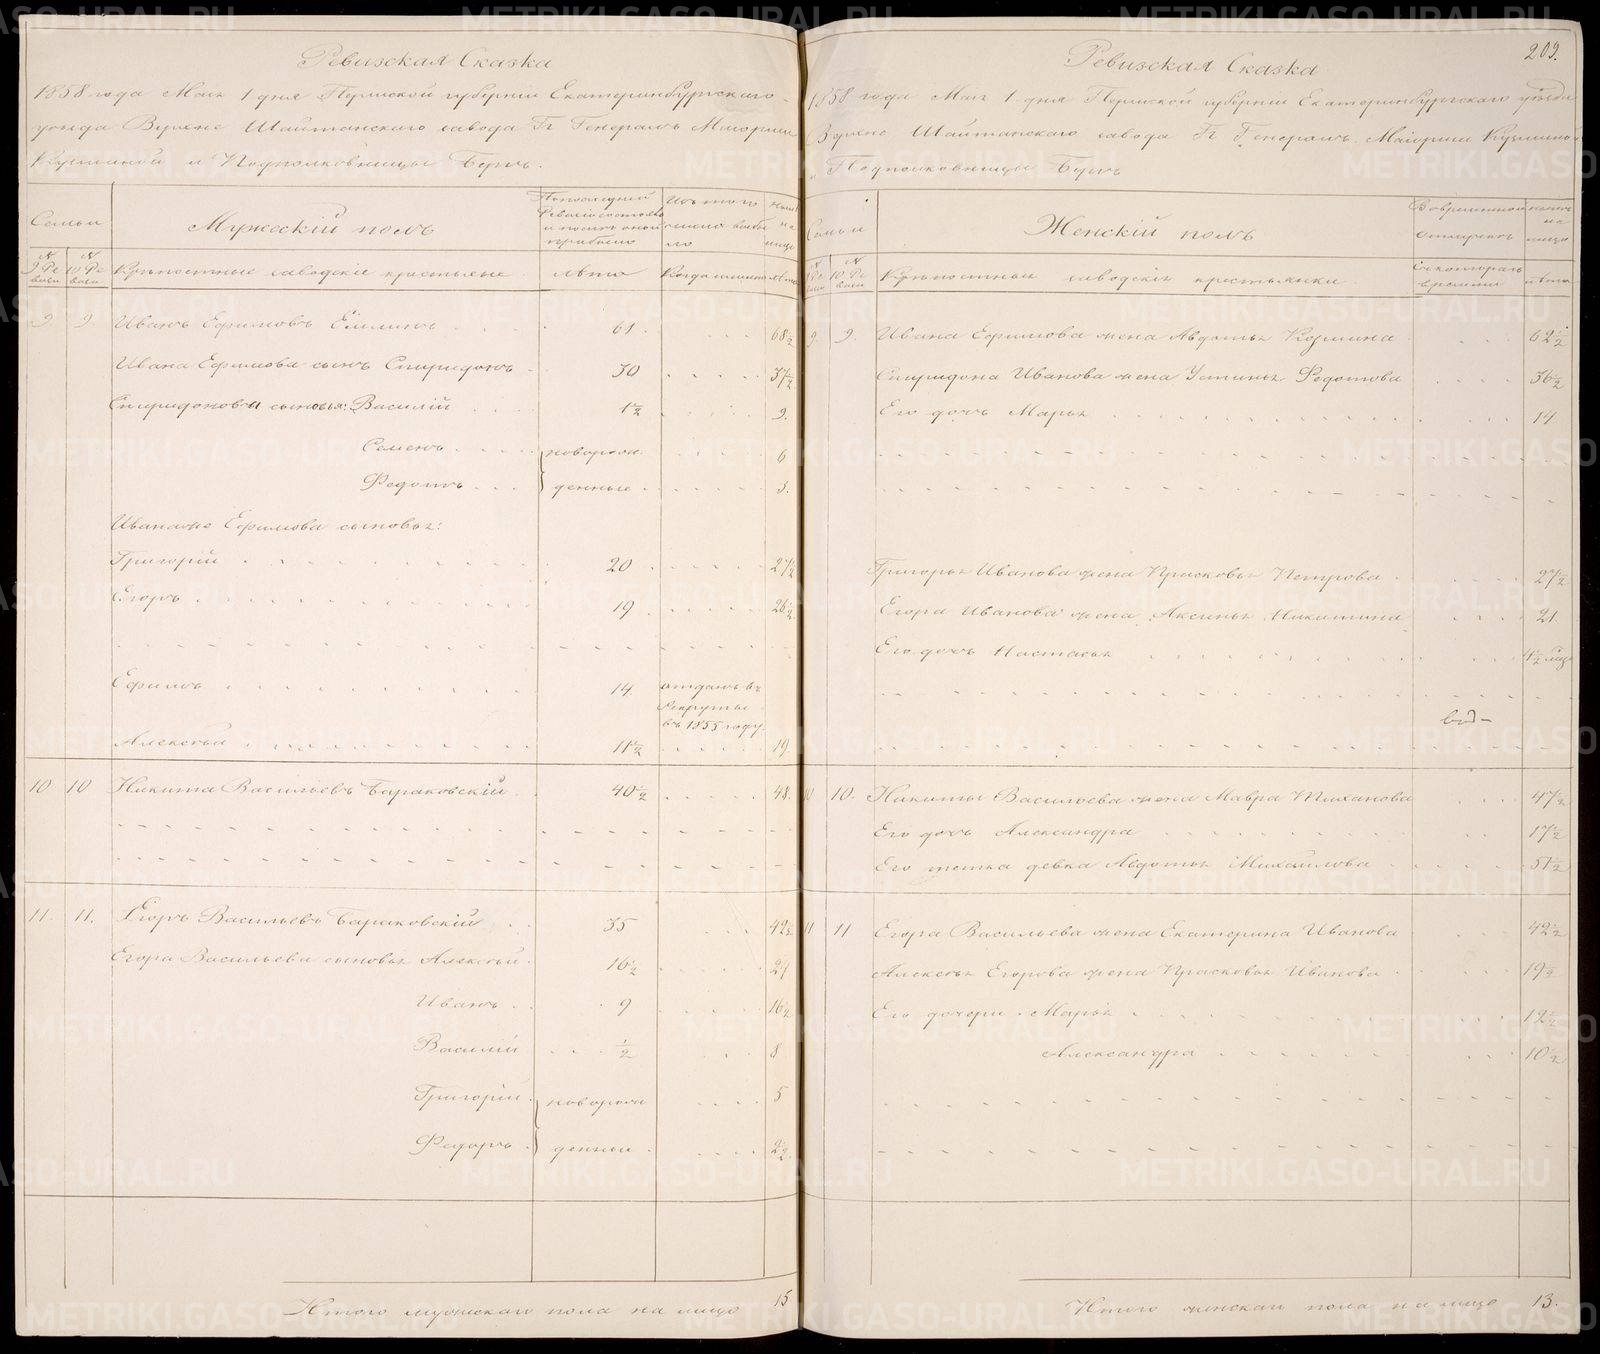 Ревизская Сказка
1858 года Мая 1 дня Пермской губерніи Екатеринбургскаго
уѣзда Верхне Шайтанскаго завода Гг Генералъ Маіорши
Кузминой и Подполковницы Бергъ.
Семьи
Мужескій полъ
Изъ того числа выбыло
на лицо
№ 9 Ревизіи
№ 10 Ревизіи
Крѣпостные заводскіе крестьяне
лѣта
Когда именно
лѣта
9. 9. Иванъ Ефимовъ 61. 68½
Ивана Ефимова сынъ Спиридонъ 30 37½
Спиридоновы сыновья: Василій 1½ 9.
Семенъ новорож 6
Федотъ денные 3.
Иванаже Ефимова сыновья:
Григорій 20 27½
Егоръ 19 26½
Ефимъ 14. отданъ въ
рекруты
въ 1855 году.
Алексѣй 11½ 19
10 10 Никита Васильевъ Бараковскій 40½ 48.
11. 11. Егоръ Васильевъ Бараковскій 35 42½
Егора Васильева сыновья Алексѣй 16½ 24
Иванъ 9 16½
Василій ½ 8
Григорій новорож 5
Федоръ денные 2½
Итого мужскаго пола на лицо 15
209.
Ревизская Сказка
1858 года Мая 1 дня Пермской губерніи Екатеринбургскаго уѣзда
Верхне Шайтанскаго завода Гг Генералъ Маіорши Кузминой
и Подполковницы Бергъ
Семьи
Женскій полъ
Во временной отлучкѣ
на лицо
№ 9 Ревизіи
№ 10 Ревизіи
Крѣпостныя заводскія крестьянки
Съ котораго времени
лѣта
9 9. Ивана Ефимова жена Авдотья Козмина 62½
Спиридона Иванова жена Устинья Федотова 36½
Его дочь Марья 14
Григорья Иванова жена Прасковья Петрова 27½
Егора Иванова жена Аксинья Никитина 21.
Его дочь Настасья 4½ мѣц
10 10. Никиты Васильева жена Мавра Тиханова 47½
Его дочь Александра 17½
Его тетка девка Авдотья Михайлова 51½
11 11 Егора Васильева жена Екатерина Иванова 42½
Алексѣя Егорова жена Прасковья Иванова 19½
Его дочери Марья 12½
Александра 10½
Итого женскаго пола на лицо 13.
METRIKI.GASO-URAL.RU